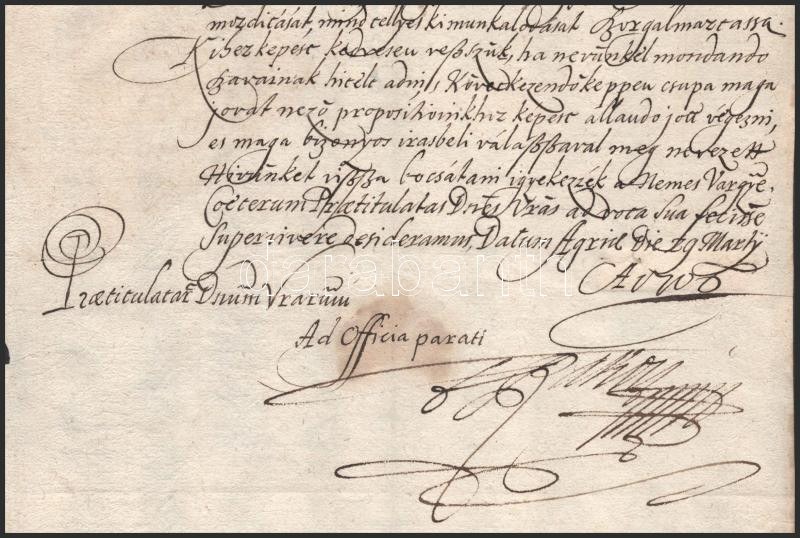 mozditasat, mind tellyes ki munkalodasat Szorgalmaztassa.
Kihez kepest, kedvesen vesszük, ha nevünkel mondando
Szavainak hitelt adni, Következendökeppen csupa maga
jovat nezö propositioinkhoz kepest allando jott vegezni,
es maga bizonyos irasbeli válaßßaval meg nevezett
Hivünket vißßa bocsátani igyekezzek a Nemes Vargye.
Coeterum Praetitulatas Dnes Vras ad vota sua felicße
Supervivere desideramus, Datum Agriae Die 29 Martij
Praetitulatar Dnum Vrarum
Ad Officia parati
darabanth